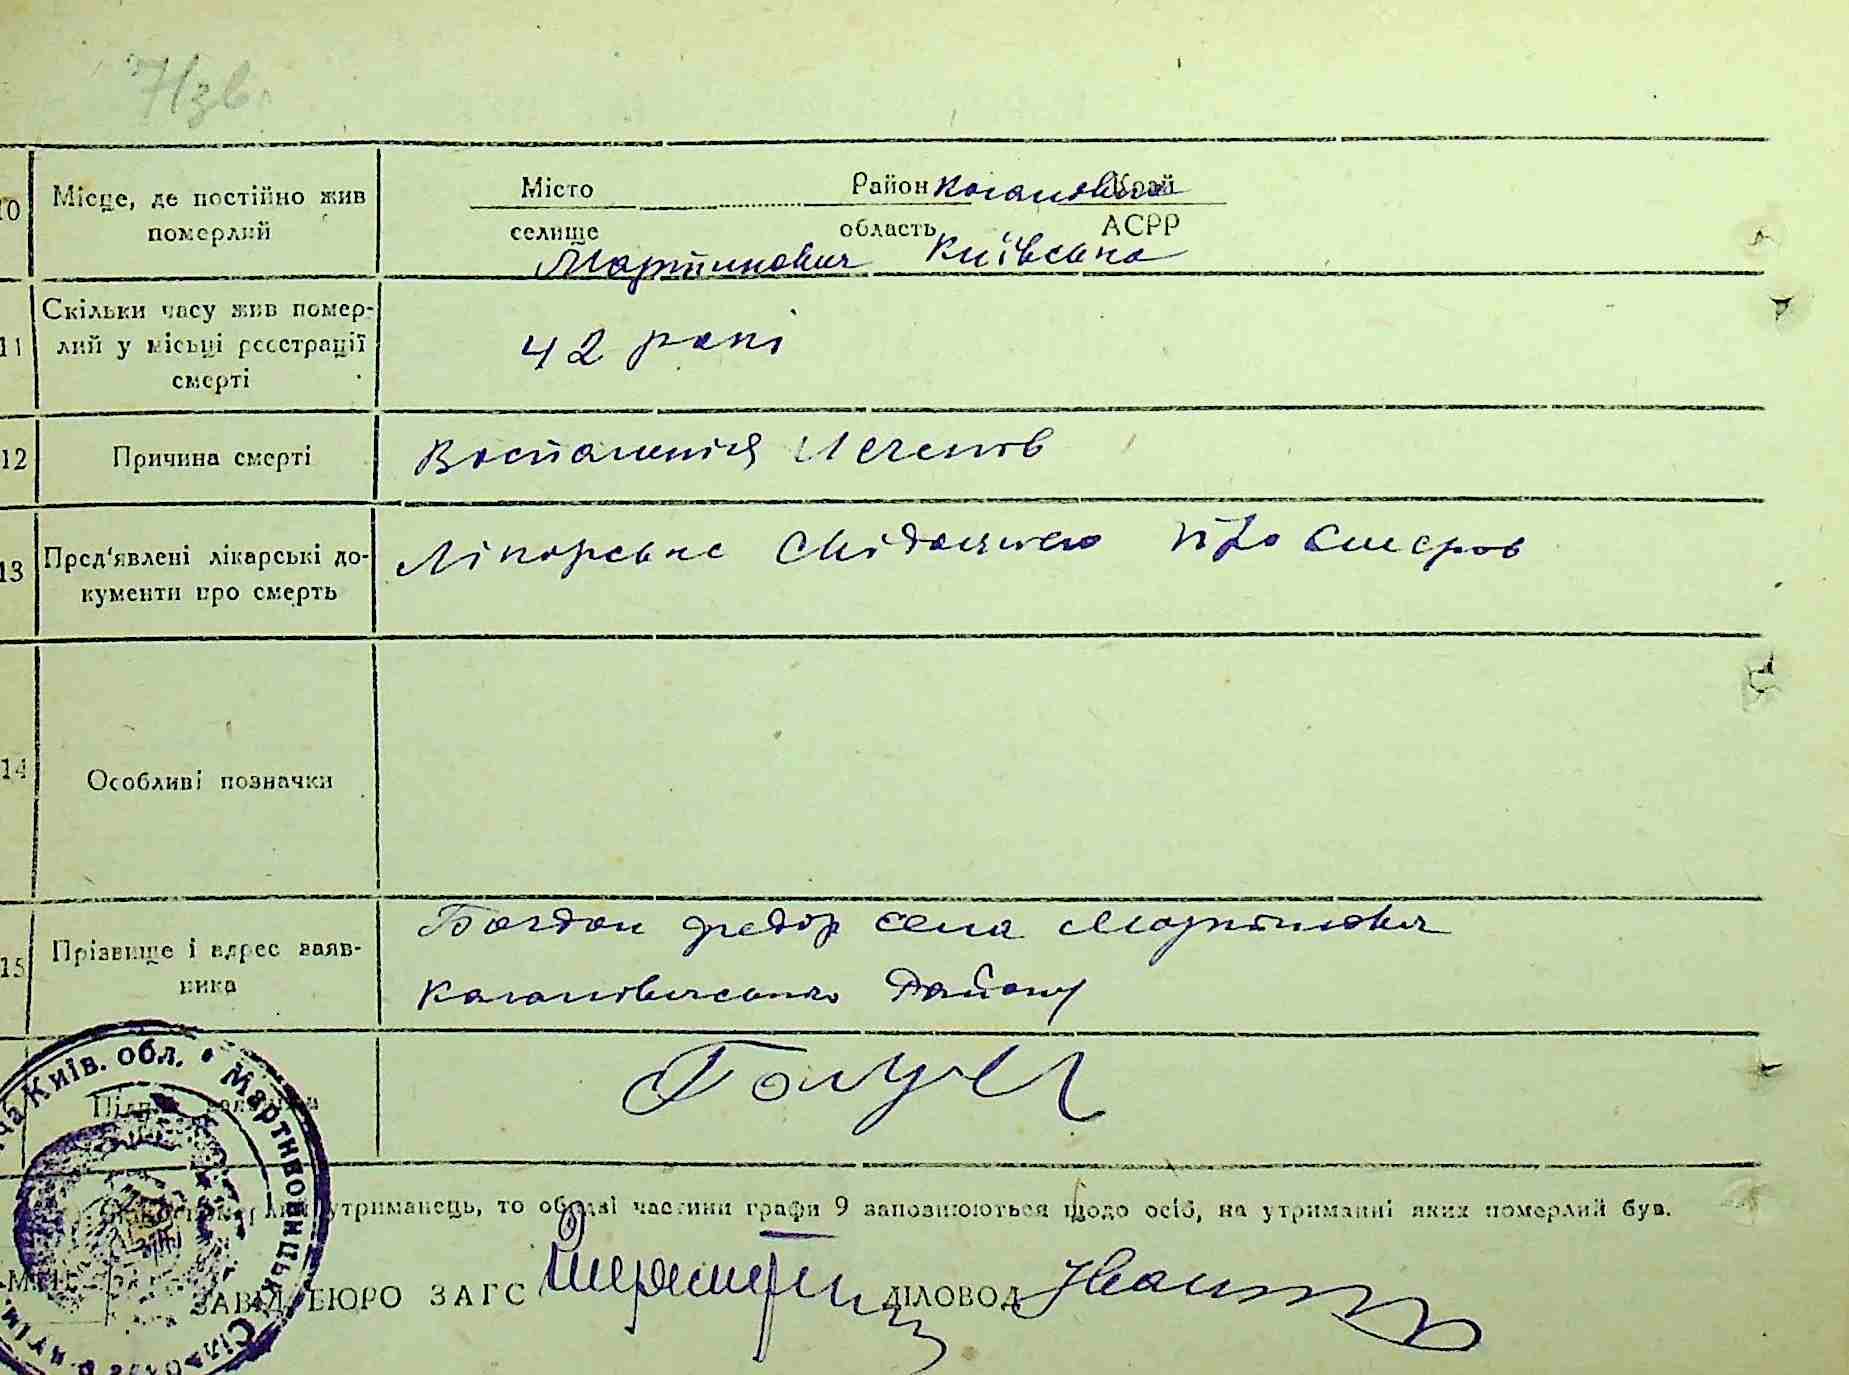 71зв.
10 Місце, де постійно жив померлий
Місто Район Коганович Край
селище область АСРР
Мартинович Київська
11 Скільки часу жив помер-
лий у місьці реєстрації
смерті
42 рокі
12 Причина смерті
Воспаленія Легенів
13 Пред'явлені лікарські до-
кументи про смерть
Лікорське Свідоцтво про смерть
14 Особливі позначки
15 Прізвище і адрес заяв-
ника
Богдан Федор села Мортинович
Когановичського Району
Підпис заявника
утриманець, то обидві частини графи 9 заповнюються щодо осіб, на утриманні яких померлий був.
ЗАВІД. БЮРО ЗАГС ДІЛОВОД
Київ. обл. • Мартиновицька Сільська